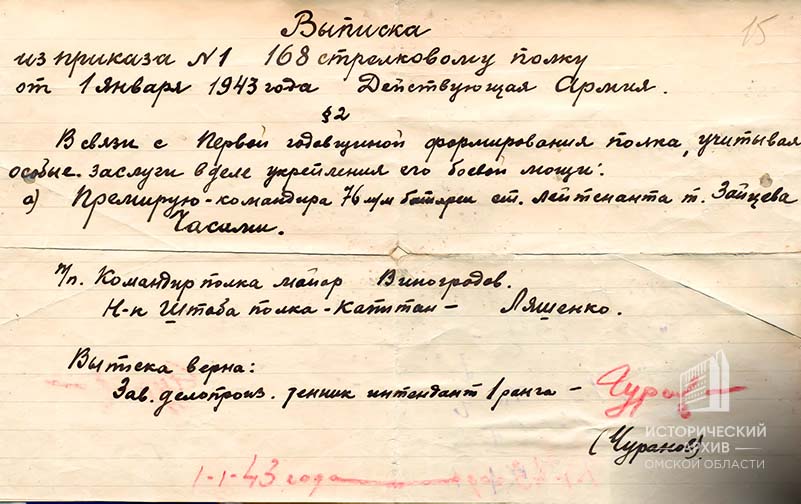 15
Выписка
из приказа №1 168 стрелковому полку
от 1 Января 1943 года Действующая Армия.
§2
В связи с Первой годовщиной формирования полка, учитывая
особые заслуги в деле укрепления его боевой мощи:
а) Премирую - командира 76 м/м батареи ст. лейтенанта т. Зайцева
Часами.
п/п. Командир полка майор Виноградов.
Н-к Штаба полка - Капитан - Ляшенко.
Выписка верна:
Зав. делопроиз. техник интендант 1 ранга -
(Чуранов)
1-1-43 года
ИСТОРИЧЕСКИЙ
АРХИВ
ОМСКОЙ ОБЛАСТИ